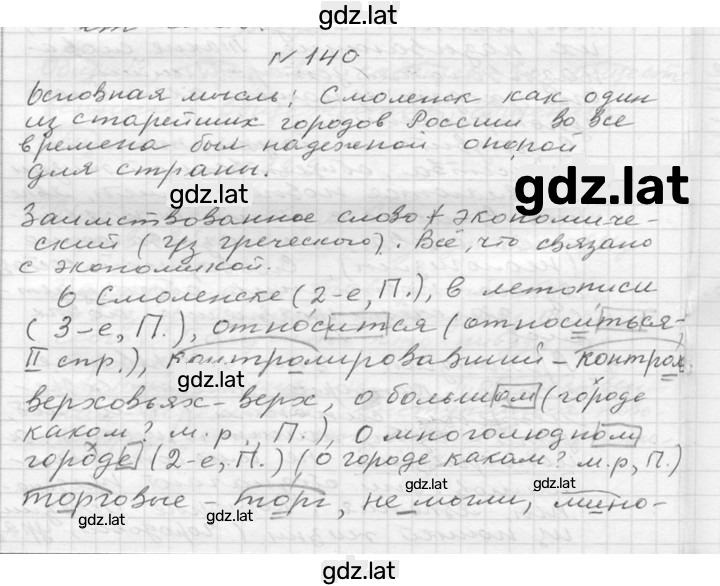 gdz.lat
№ 140
Основная мысль: Смоленск как один
из старейших городов России во все
времена был надежной опорой
для страны.
gdz.lat
gdz.lat
Заимствованное слово экономиче-
ский (из греческого). Всё, что связано
с экономикой.
О Смоленске (2-е, П.), в летописи
(3-е, П.), относится (относиться-
II спр.), контролировавший - контроль
gdz.lat
верховьях - верх, о большом (городе
каком? м.р, П.), О многолюдном
городе (2-е, П.) (о городе каком? м.р, П.)
gdz.lat gdz.lat
торговые - торг, не могли, мино-
gdz.lat gdz.lat
gdz.lat